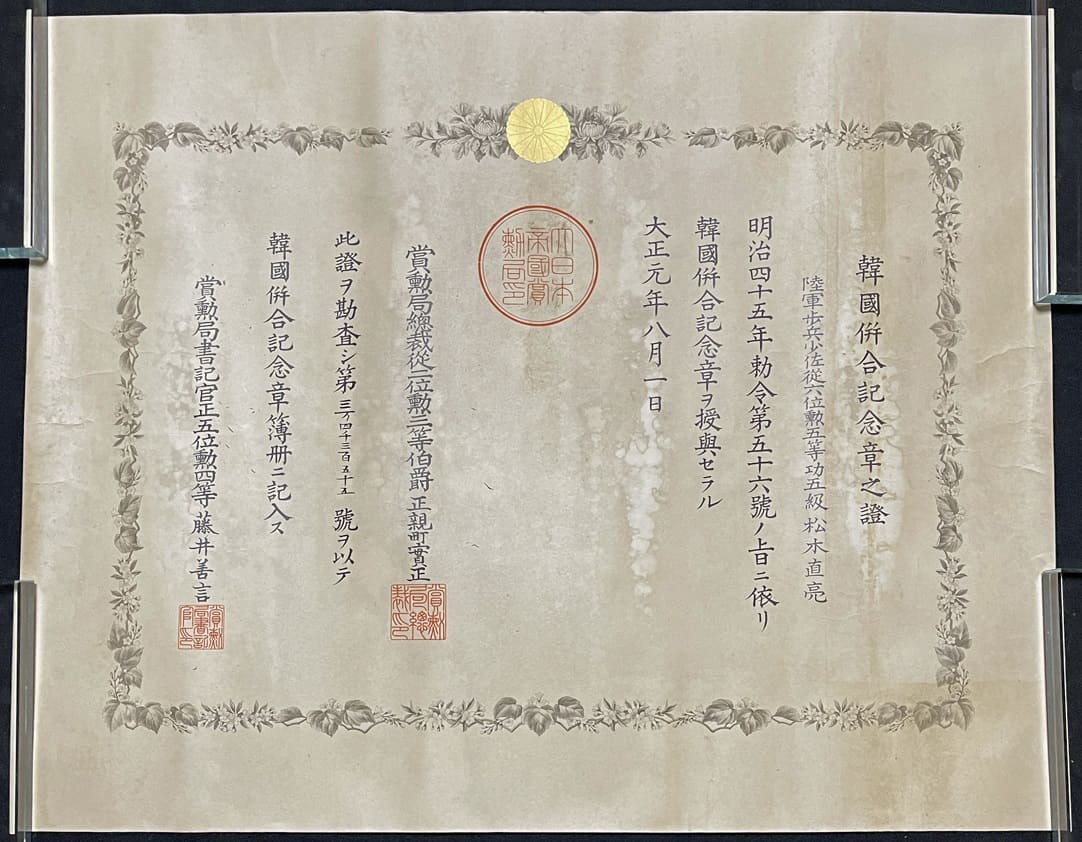 韓國倂合記念章之證
陸軍歩兵少佐從六位勲五等功五級 松木直亮
明治四十五年勅令第五十六號ノ旨ニ依リ
韓國倂合記念章ヲ授與セラル
大正元年八月一日
大日本帝國賞勲局印
賞勲局總裁從二位勲三等伯爵 正親町實正
賞勲局總裁印
此證ヲ勘査シ第三万四千三百五十五號ヲ以テ
韓國倂合記念章簿册ニ記入ス
賞勲局書記官正五位勲四等 藤井善言
賞勲局書記官印